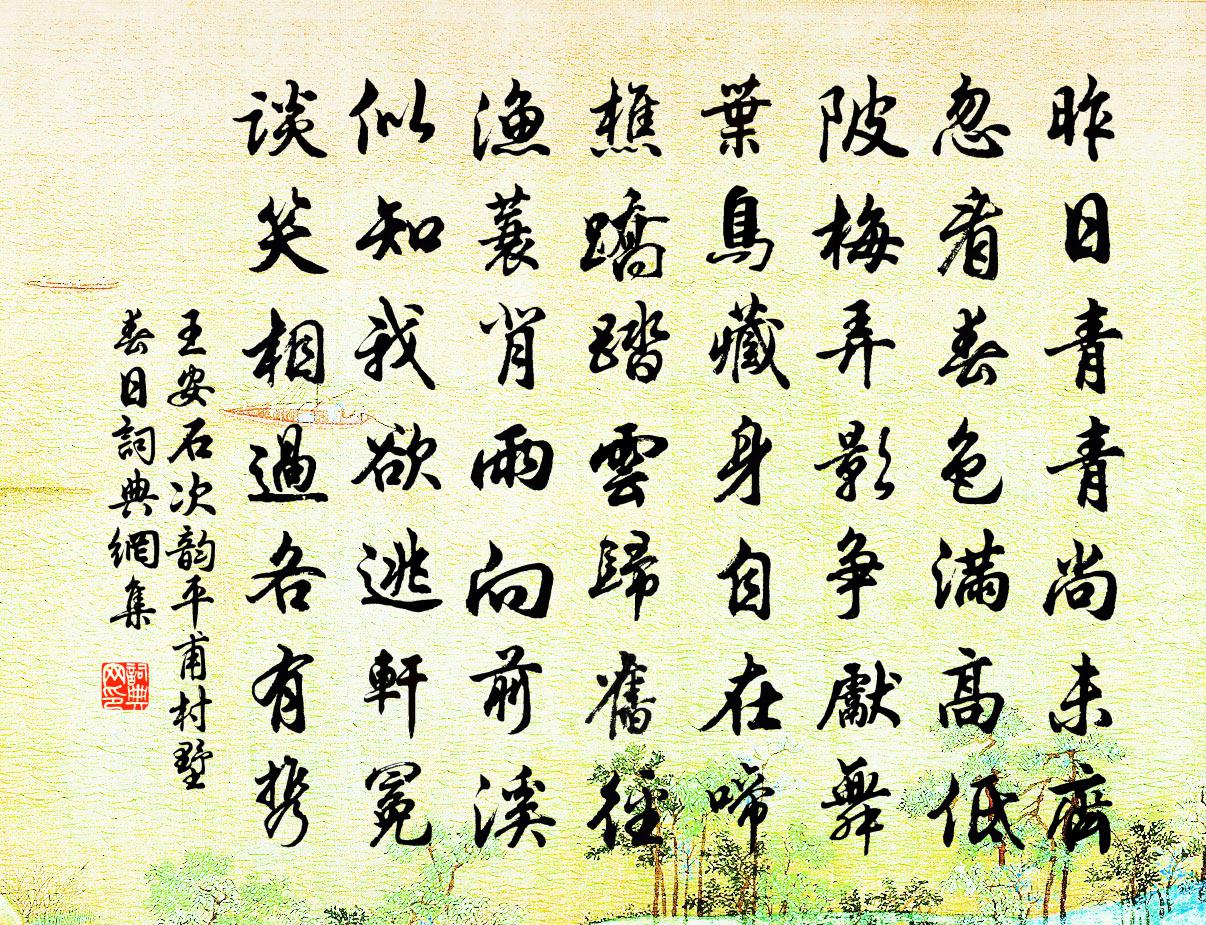 昨日青青尚未齊
忽看春色滿高低
陂梅弄影爭獻舞
葉鳥藏身自在啼
樵蹻踏雲歸舊徑
漁蓑背雨向前溪
似知我欲逃軒冕
談笑相過各有携
王安石次韵平甫村墅
春日詞典網集
詞典网印